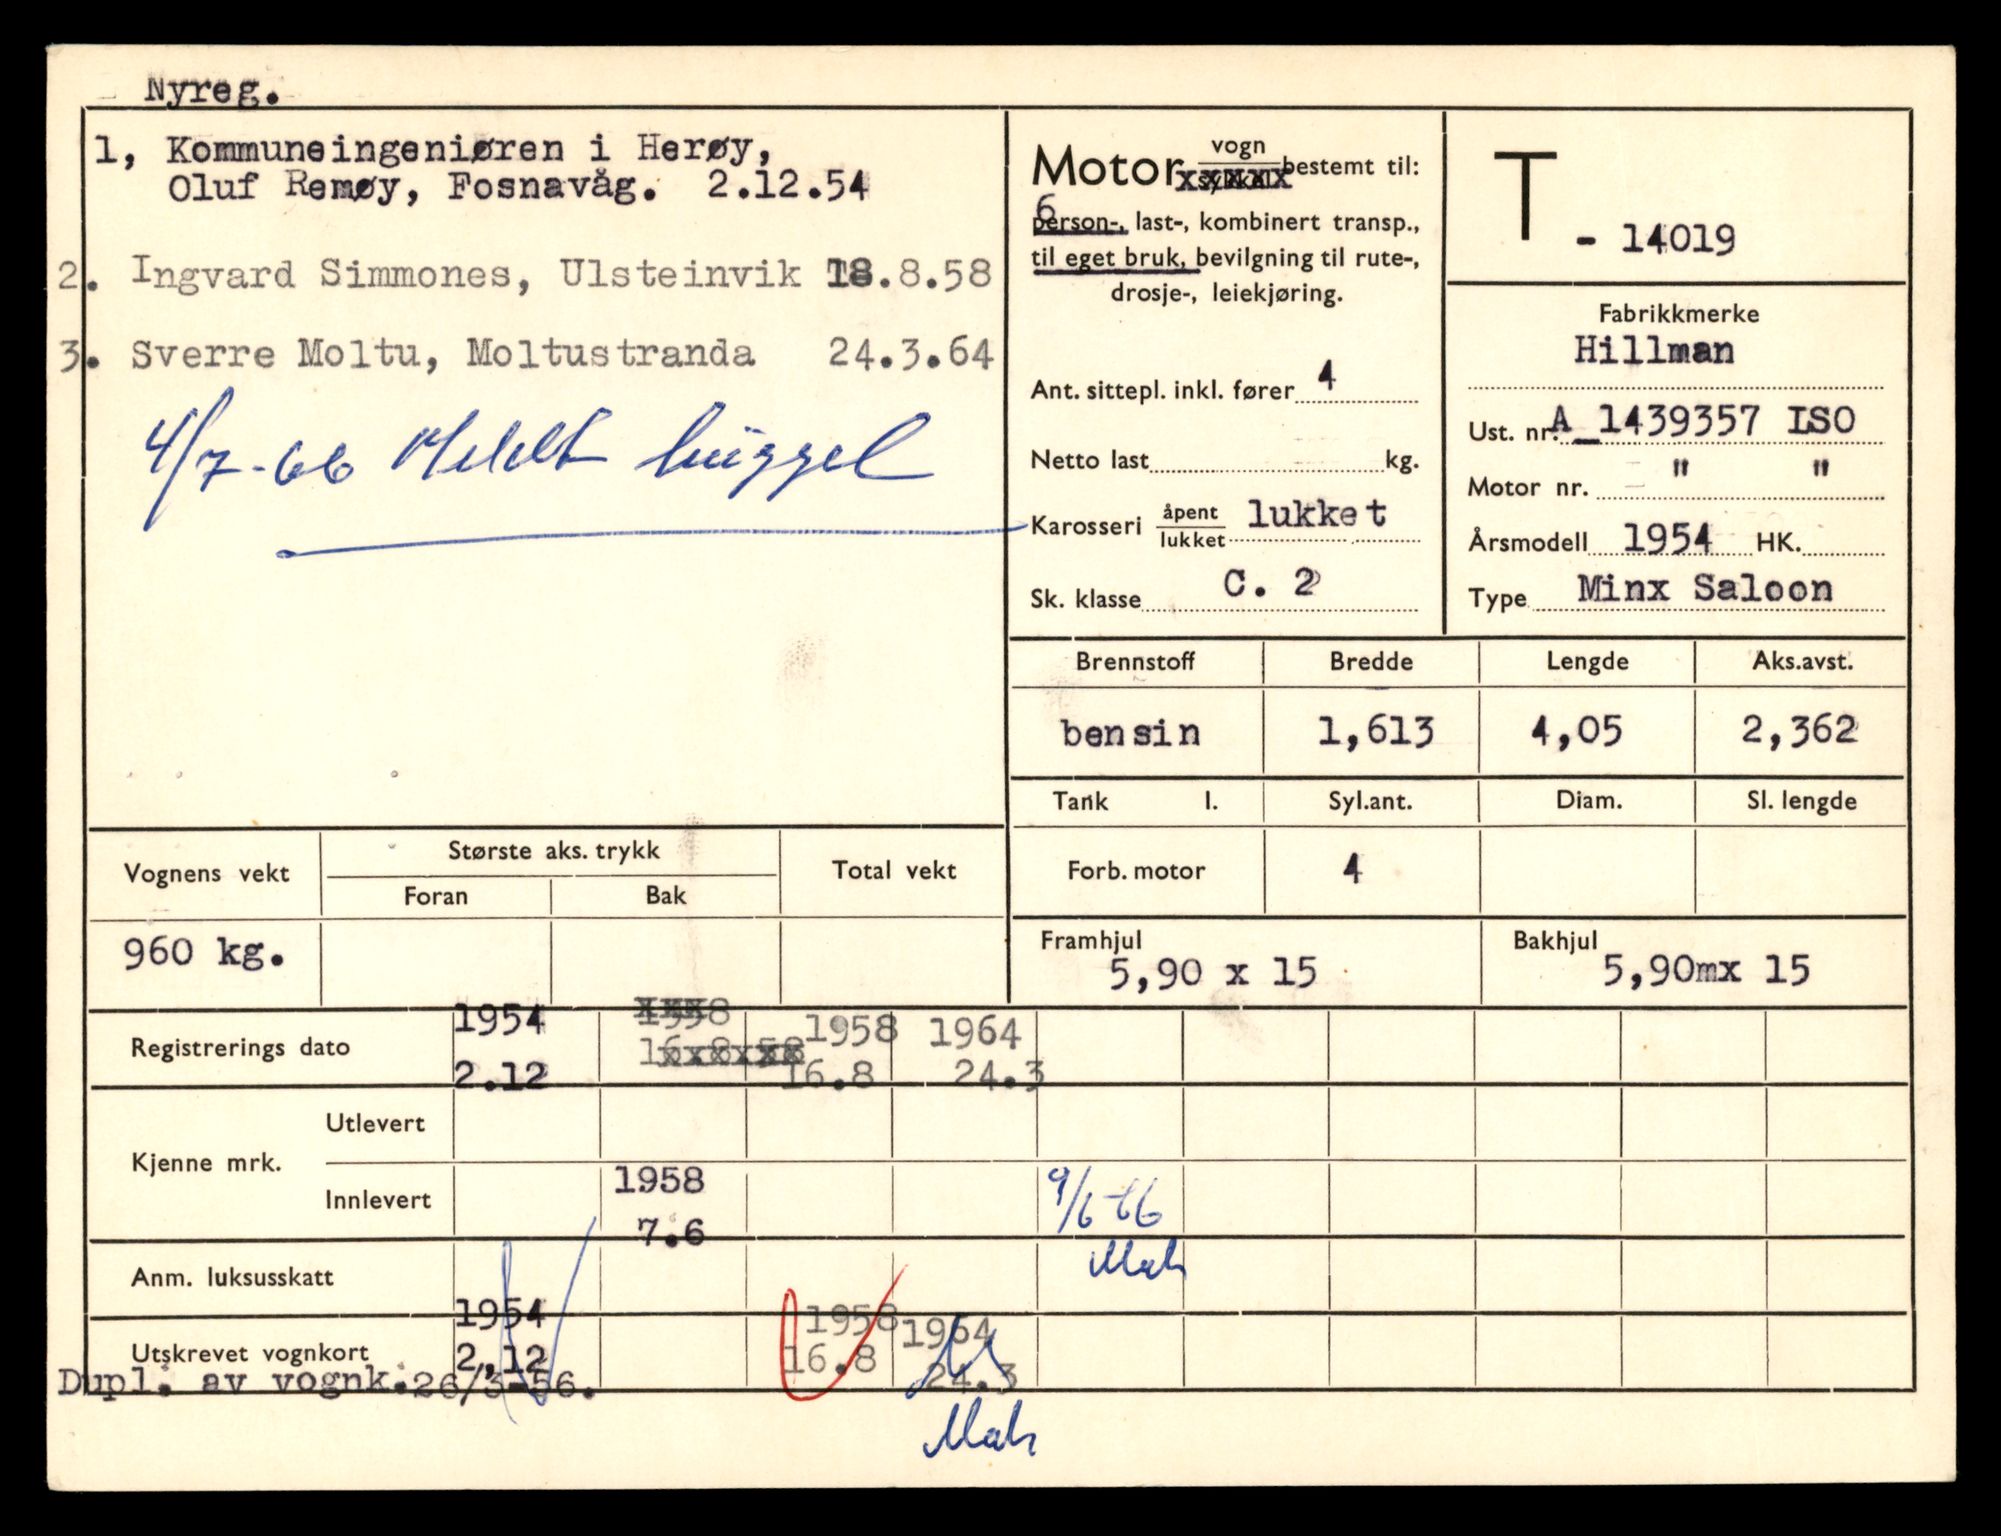 Nyreg.
1, Kommuneingeniøren i Herøy,
Oluf Remøy, Fosnavåg. 2.12.54
2. Ingvard Simmones, Ulsteinvik 18.8.58
3. Sverre Moltu, Moltustranda 24.3.64
4/7-66 Meldt
Motor vogn bestemt til:
6
person-, last-, kombinert transp.,
til eget bruk, bevilgning til rute-,
drosje-, leiekjøring.
Ant. sittepl. inkl. fører 4
Netto last kg.
Karosseri åpent lukket lukket
Sk. klasse C. 2
T - 14019
Fabrikkmerke
Hillman
Ust. nr. A_1439357 LSO
Motor nr. " "
Årsmodell 1954 HK.
Type Minx Saloon
Brennstoff Bredde Lengde Aks.avst.
bensin 1,613 4,05 2,362
Tank l. Syl.ant. Diam. Sl. lengde
Forb. motor 4
Vognens vekt Største aks. trykk Total vekt
Foran Bak
960 kg.
Framhjul Bakhjul
5,90 x 15 5,90mx 15
1954 1958 1958 1964
Registrerings dato
2.12 16.8 24.3
Kjenne mrk. Utlevert
Innlevert 1958 9/6 66
7.6
Anm. luksusskatt
1954 1958 1964
Utskrevet vognkort 2,12 16.8 24.3
Dupl. av vognk. 26/3-56.